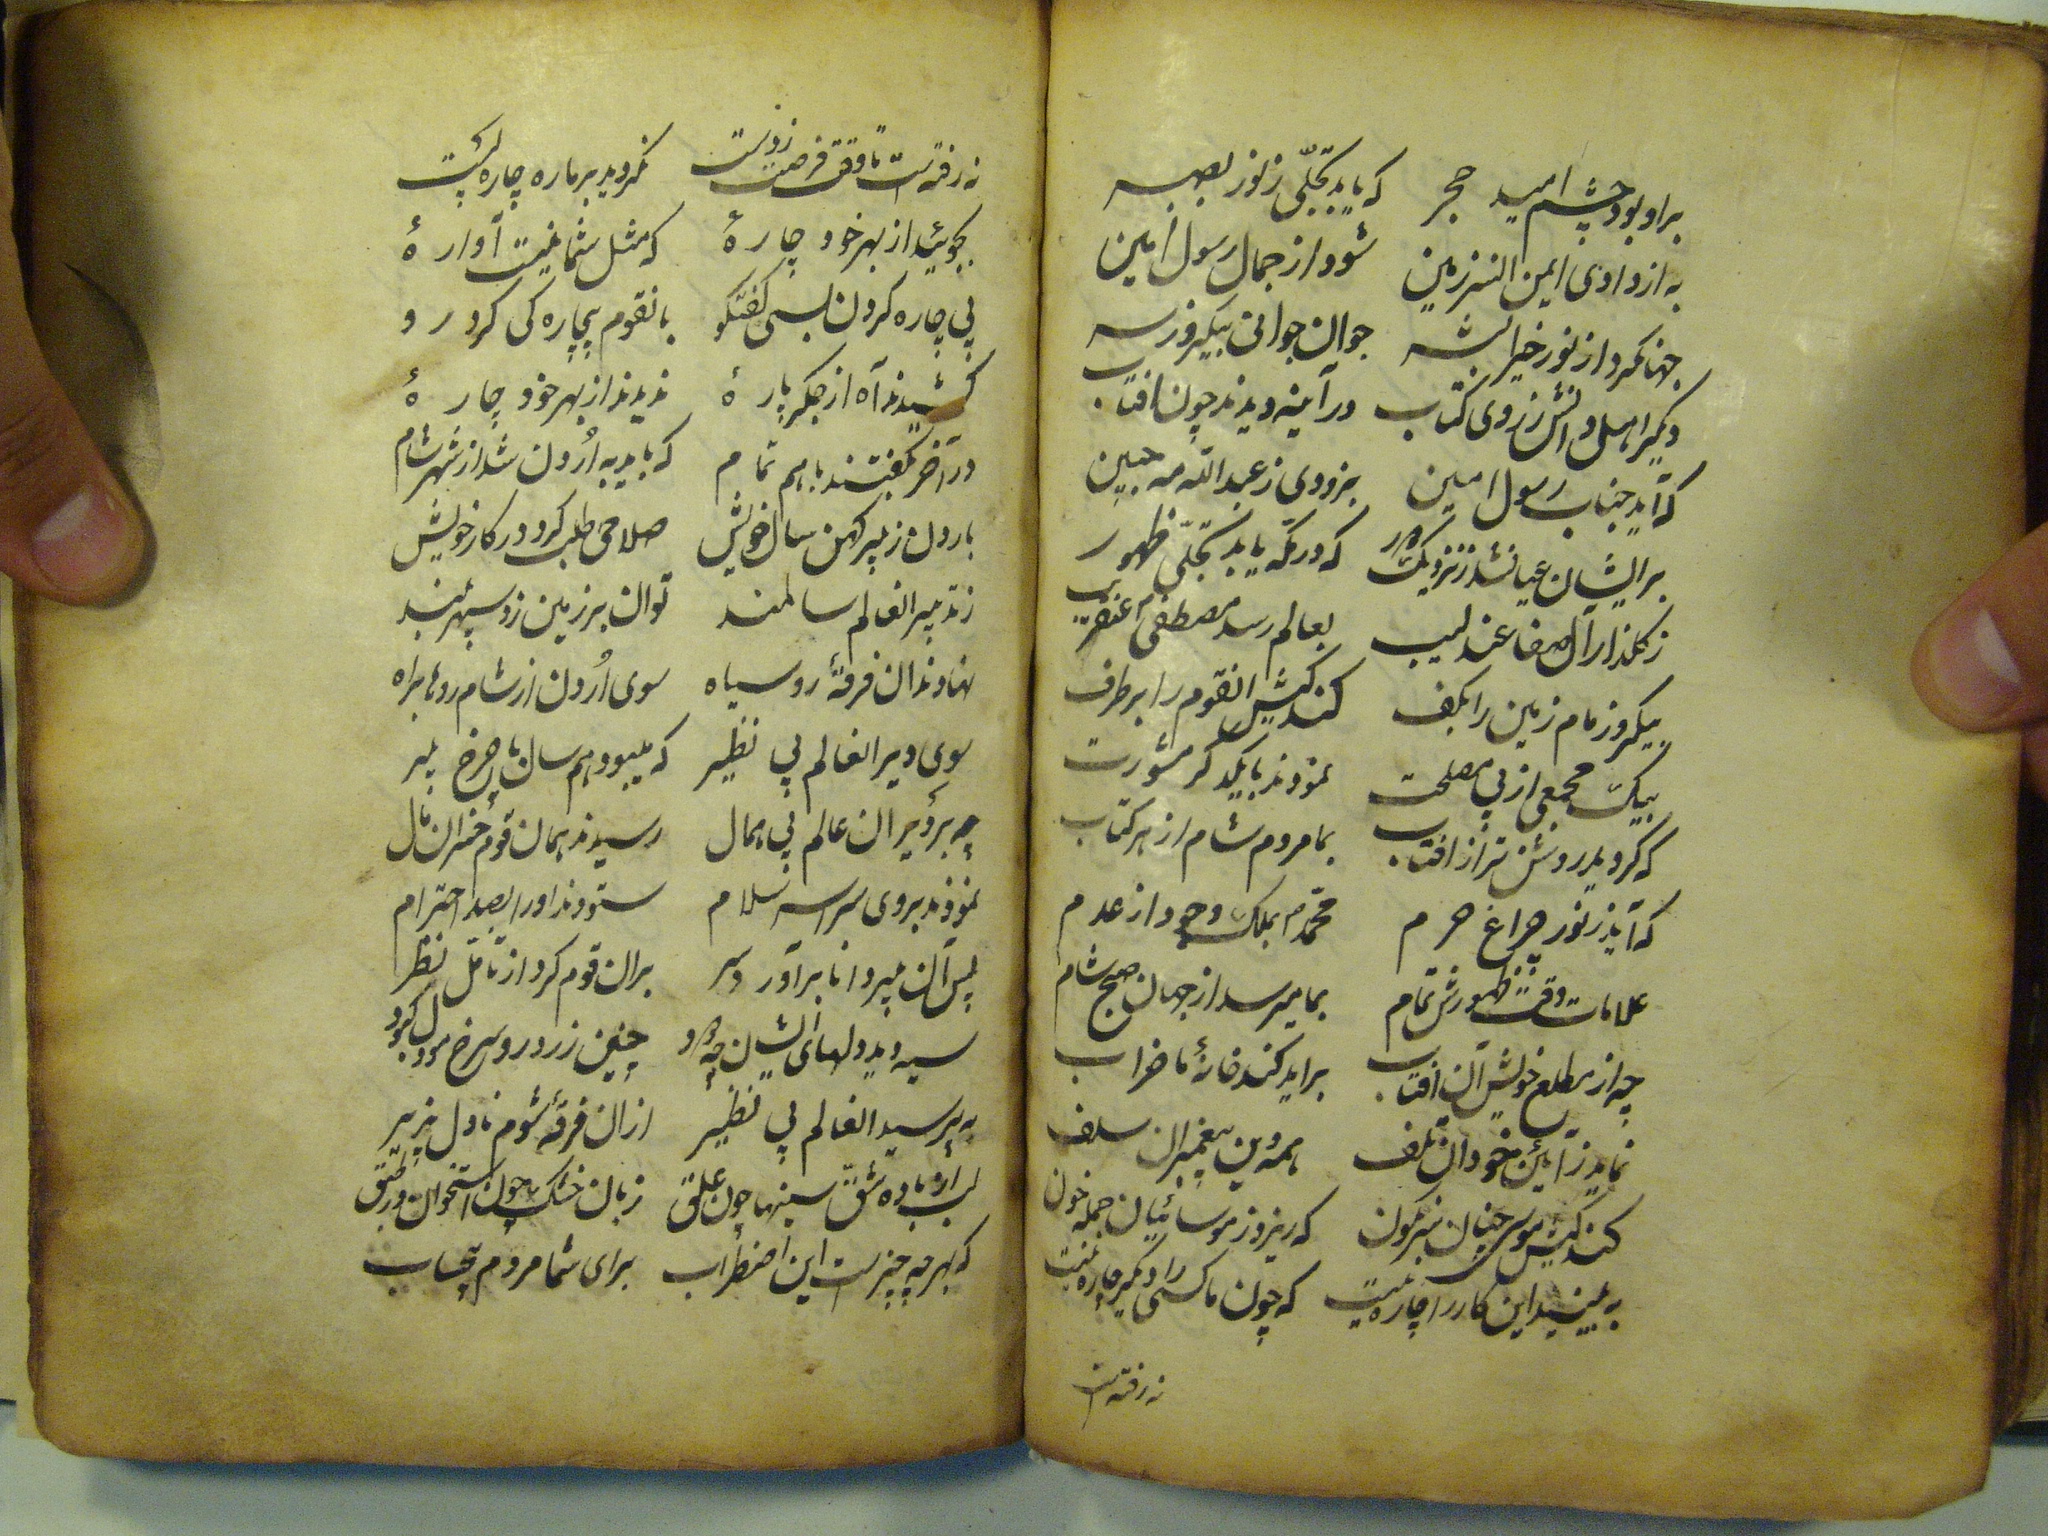 براو بود چشم امید حجر که یابد تجلّی ز نور بصر
به از وادی ایمن السرزمین شود از جمال رسول امین
جهان کرد از نور خیر البشر جوان جوانی بیکروزسه
دیکر اهل دانش ز روی کتاب در آینه دیدند چون افتاب
که آید جناب رسول امین بزودی ز عبد اللّه مه جبین
بر ایشان عیانشد ز نزدیک که در مکه یابد تجلّی ظهور
ز کلذار آل صفا عندلیب بعالم رسد مصطفی عنقریب
بیکرو زمام زمین را بکف کند کیش انقوم را برطرف
بیک مجمعی از پی مصلحت نمودند با یکدکر مشورت
که کردید روشن تر از افتاب بما مردم شام از هر کتاب
که آید ز نور چراغ حرم محمّد بملک وجود از عدم
علامات وقت ظهورش تمام بما میرسد از جهان صبح شام
چه از مطلع خویش آن افتاب براید کند خانهٔ ما خراب
نماید ز آئین خود ان تلف همه دین پیغمبران سلف
کند کیش موسی چنان سرنکون که ریزد ز موسائیان جمله خون
به بینید این کار را چاره نیست که چون ما کسی را دیکر چاره نیست
نه رفته است
نه رفته است تا وقت فرصت ز دست نکردید بر ما ره چاره بست
بجوئید از بهر خود چارهٔ که مثل شما نیست آوارهٔ
پی چاره کردن بسی کفتکو بانقوم بیچاره کی کرد رو
کشیدند آه از جکر پارهٔ ندیدند از بهر خود چارهٔ
در آخر بکفتند با هم تمام که باید به اُردن شد از شهر شام
باردن ز پیر کهن سال خویش صلاحی طلب کرد در کار خویش
ز تدبیر انعالم سالمند توان بر زمین زد سپهر بلند
نهادند ان فرقهٔ رو سیاه سوی اُردن از شام روها براه
سوی دیر انعالم بی نظیر که میبود هم سال با چرخ پیر
چه بر دیر ان عالم بی همال رسیدند همان قوم خسران مآل
نمودند بروی سراسر سلام ستودند اورا بصد احترام
پس آن پیر دانا برآورد سر بران قوم کرد از تامّل نظر
سیه دید دلهای ایشان چه دود چنین زرد رو سرخ مو دل کبود
به پرسید انعالم بی نظیر ازان فرقهٔ شوم نا دل پذیر
لب از باده شقّ سینها چون علق زبان خشک چون استخوان در طبق
که بهر چه چیزست این اضطراب برای شما مردم بیحساب